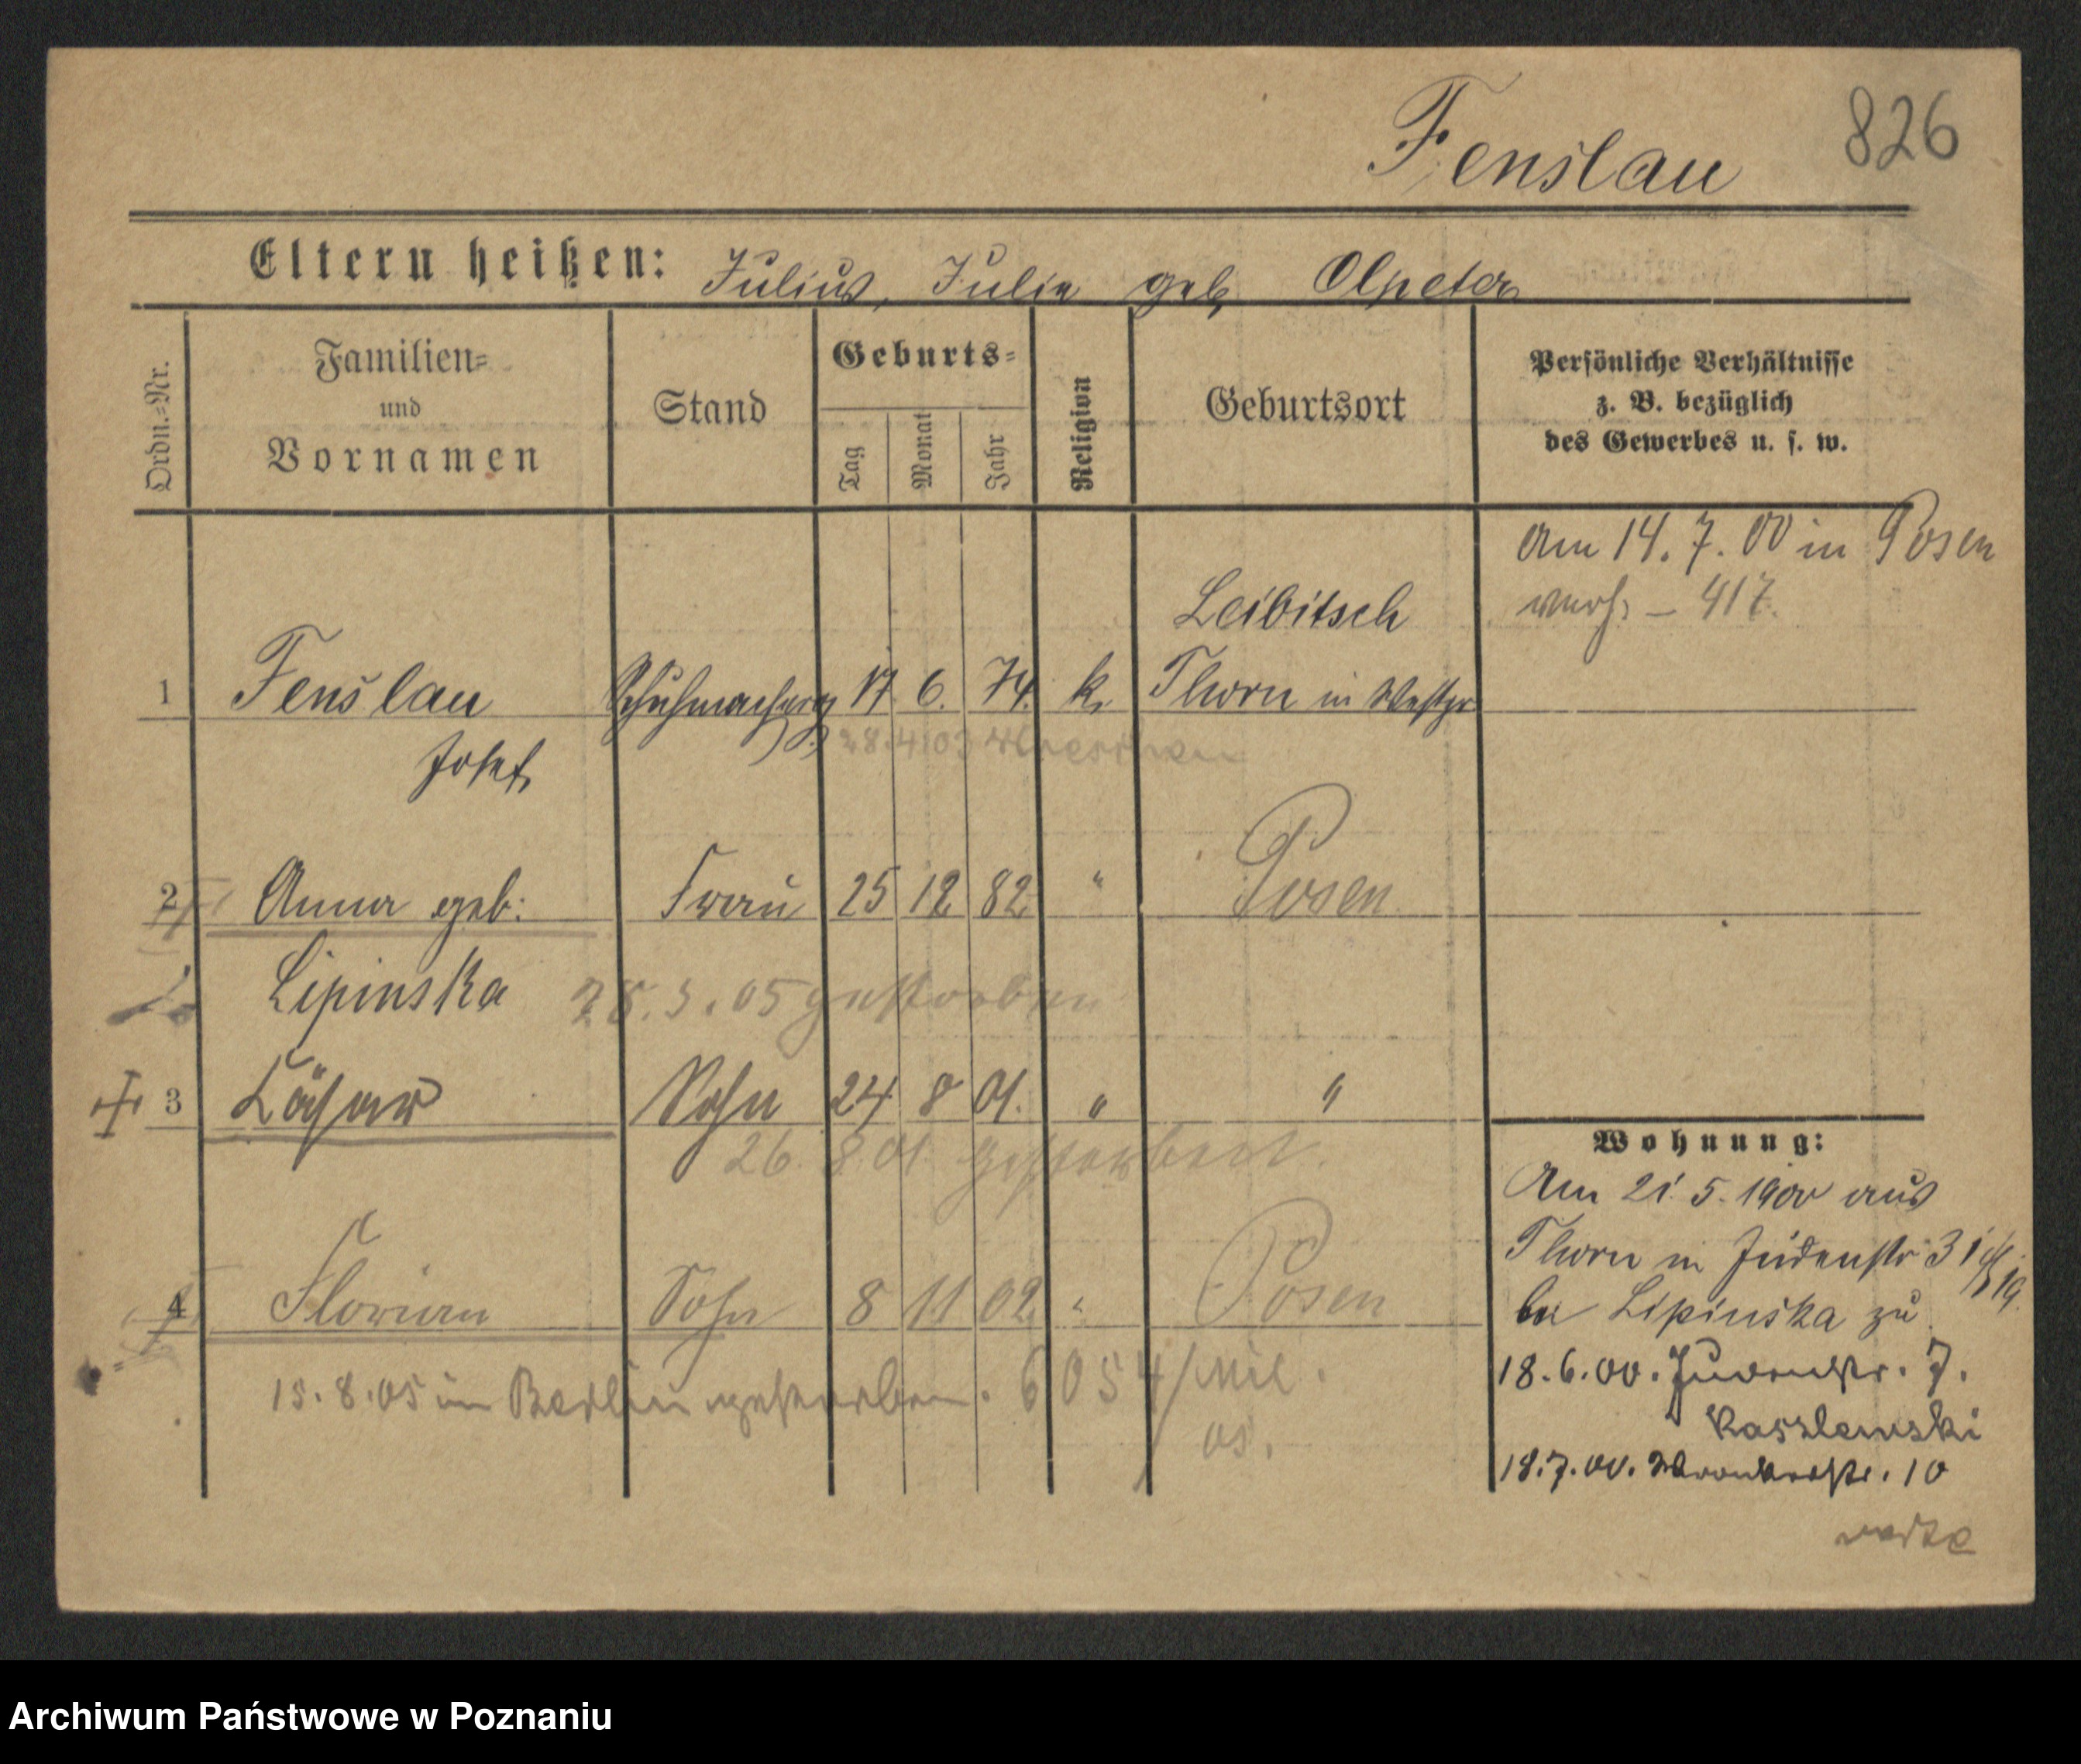 826
Fenslau
Eltern heißen: Julius, Julie geb. Olpeter
Ordn.-Nr.
Familien-
und
Vornamen
Stand
Geburts-
Tag
Monat
Jahr
Religion
Geburtsort
Persönliche Verhältnisse
z. B. bezüglich
des Gewerbes u. s. w.
Am 14. 7. 00 in Posen
verh. – 417.
Leibitsch
1 Fenslau Schuhmacherg 17. 6. 74. k. Thorn in Westpr
28.4.03
Josef
2 Anna geb: Frau 25 12 82 " Posen
Lipinska 25.3.05 gestorben
3 Cäsar Sohn 24. 8 01. " "
26. 8. 01. gestorben.
4 Florian Sohn 8 11 02 " Posen
15.8.05 in Berlin gestorben. 6054/Mil.
05.
Wohnung:
Am 21. 5. 1900 aus
Thorn in Judenstr 31
bei Lipinska zu
18.6.00. Judenstr. 7.
Kaszlewski
18.7.00. Wronkerstr. 10
Archiwum Państwowe w Poznaniu